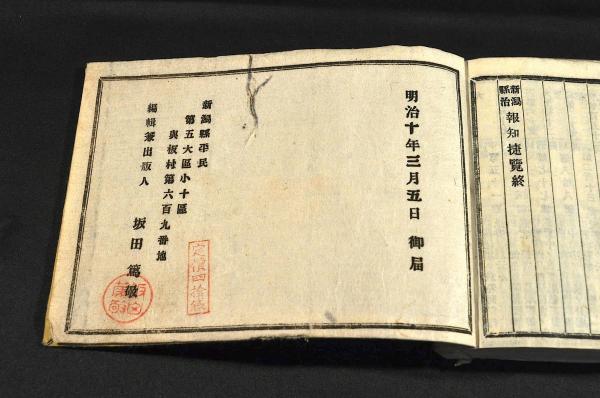 新潟縣治 報知捷覽終
明治十年三月五日 御届
新潟縣平民
第五大區小十區
與板村第六百九番地
編輯兼出版人 坂田篤敬
定價四拾錢